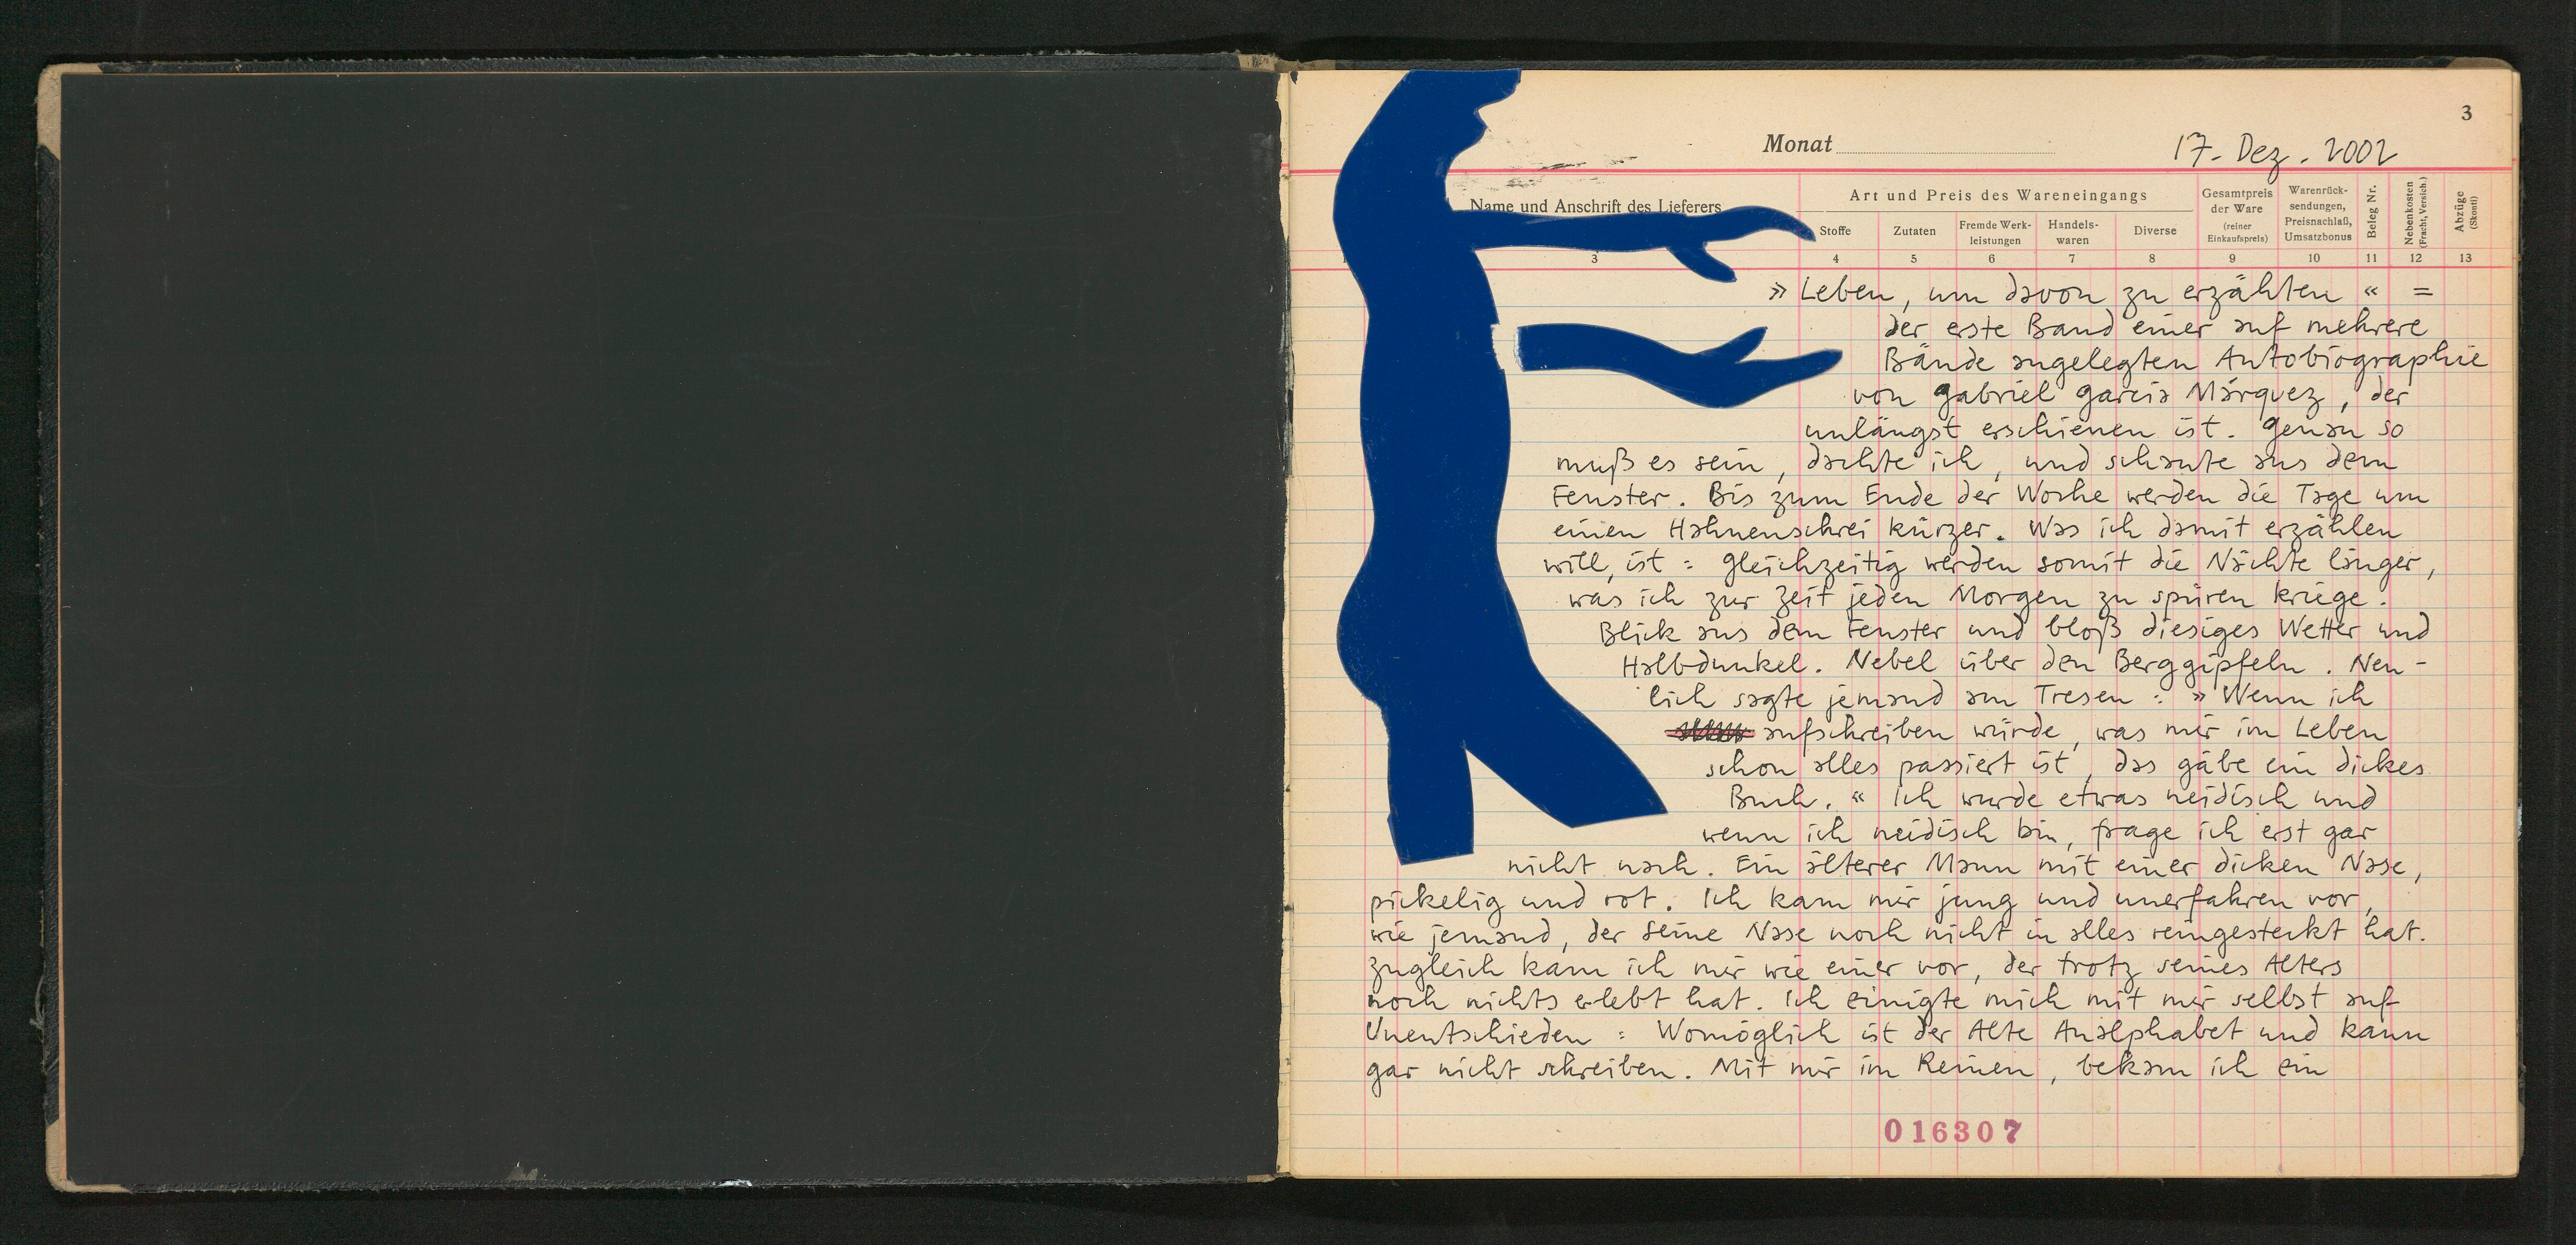 3
Monat
17. Dez. 2002
Name und Anschrift des Lieferers
Art und Preis des Wareneingangs
Stoffe
Zutaten
Fremde Werk-
leistungen
Handels-
waren
Diverse
Gesamtpreis
der Ware
(reiner
Einkaufspreis)
Warenrück-
sendungen,
Preisnachlaß,
Umsatzbonus
Beleg Nr.
Nebenkosten
(Fracht, Versich.)
Abzüge
(Skonti)
3 4 5 6 7 8 9 10 11 12 13
» Leben, um davon zu erzählten « =
der erste Band einer auf mehrere
Bände angelegten Autobiographie
von Gabriel Garcia Márquez, der
unlängst erschienen ist. Genau so
muß es sein, dachte ich, und schaute aus dem
Fenster. Bis zum Ende der Woche werden die Tage um
einen Hahnenschrei kürzer. Was ich damit erzählen
will, ist: Gleichzeitig werden somit die Nächte länger,
was ich zur Zeit jeden Morgen zu spüren kriege.
Blick aus dem Fenster und bloß diesiges Wetter und
Halbdunkel. Nebel über den Berggipfeln. Neu-
lich sagte jemand am Tresen: » Wenn ich
aufschreiben würde, was mir im Leben
schon alles passiert ist, das gäbe ein dickes
Buch. « Ich wurde etwas neidisch und
wenn ich neidisch bin, frage ich erst gar
nicht nach. Ein älterer Mann mit einer dicken Nase,
pickelig und rot. Ich kam mir jung und unerfahren vor,
wie jemand, der seine Nase noch nicht in alles reingesteckt hat.
Zugleich kam ich mir wie einer vor, der trotz seines Alters
noch nichts erlebt hat. Ich einigte mich mit mir selbst auf
Unentschieden: Womöglich ist der Alte Analphabet und kann
gar nicht schreiben. Mit mir im Reinen, bekam ich ein
016307